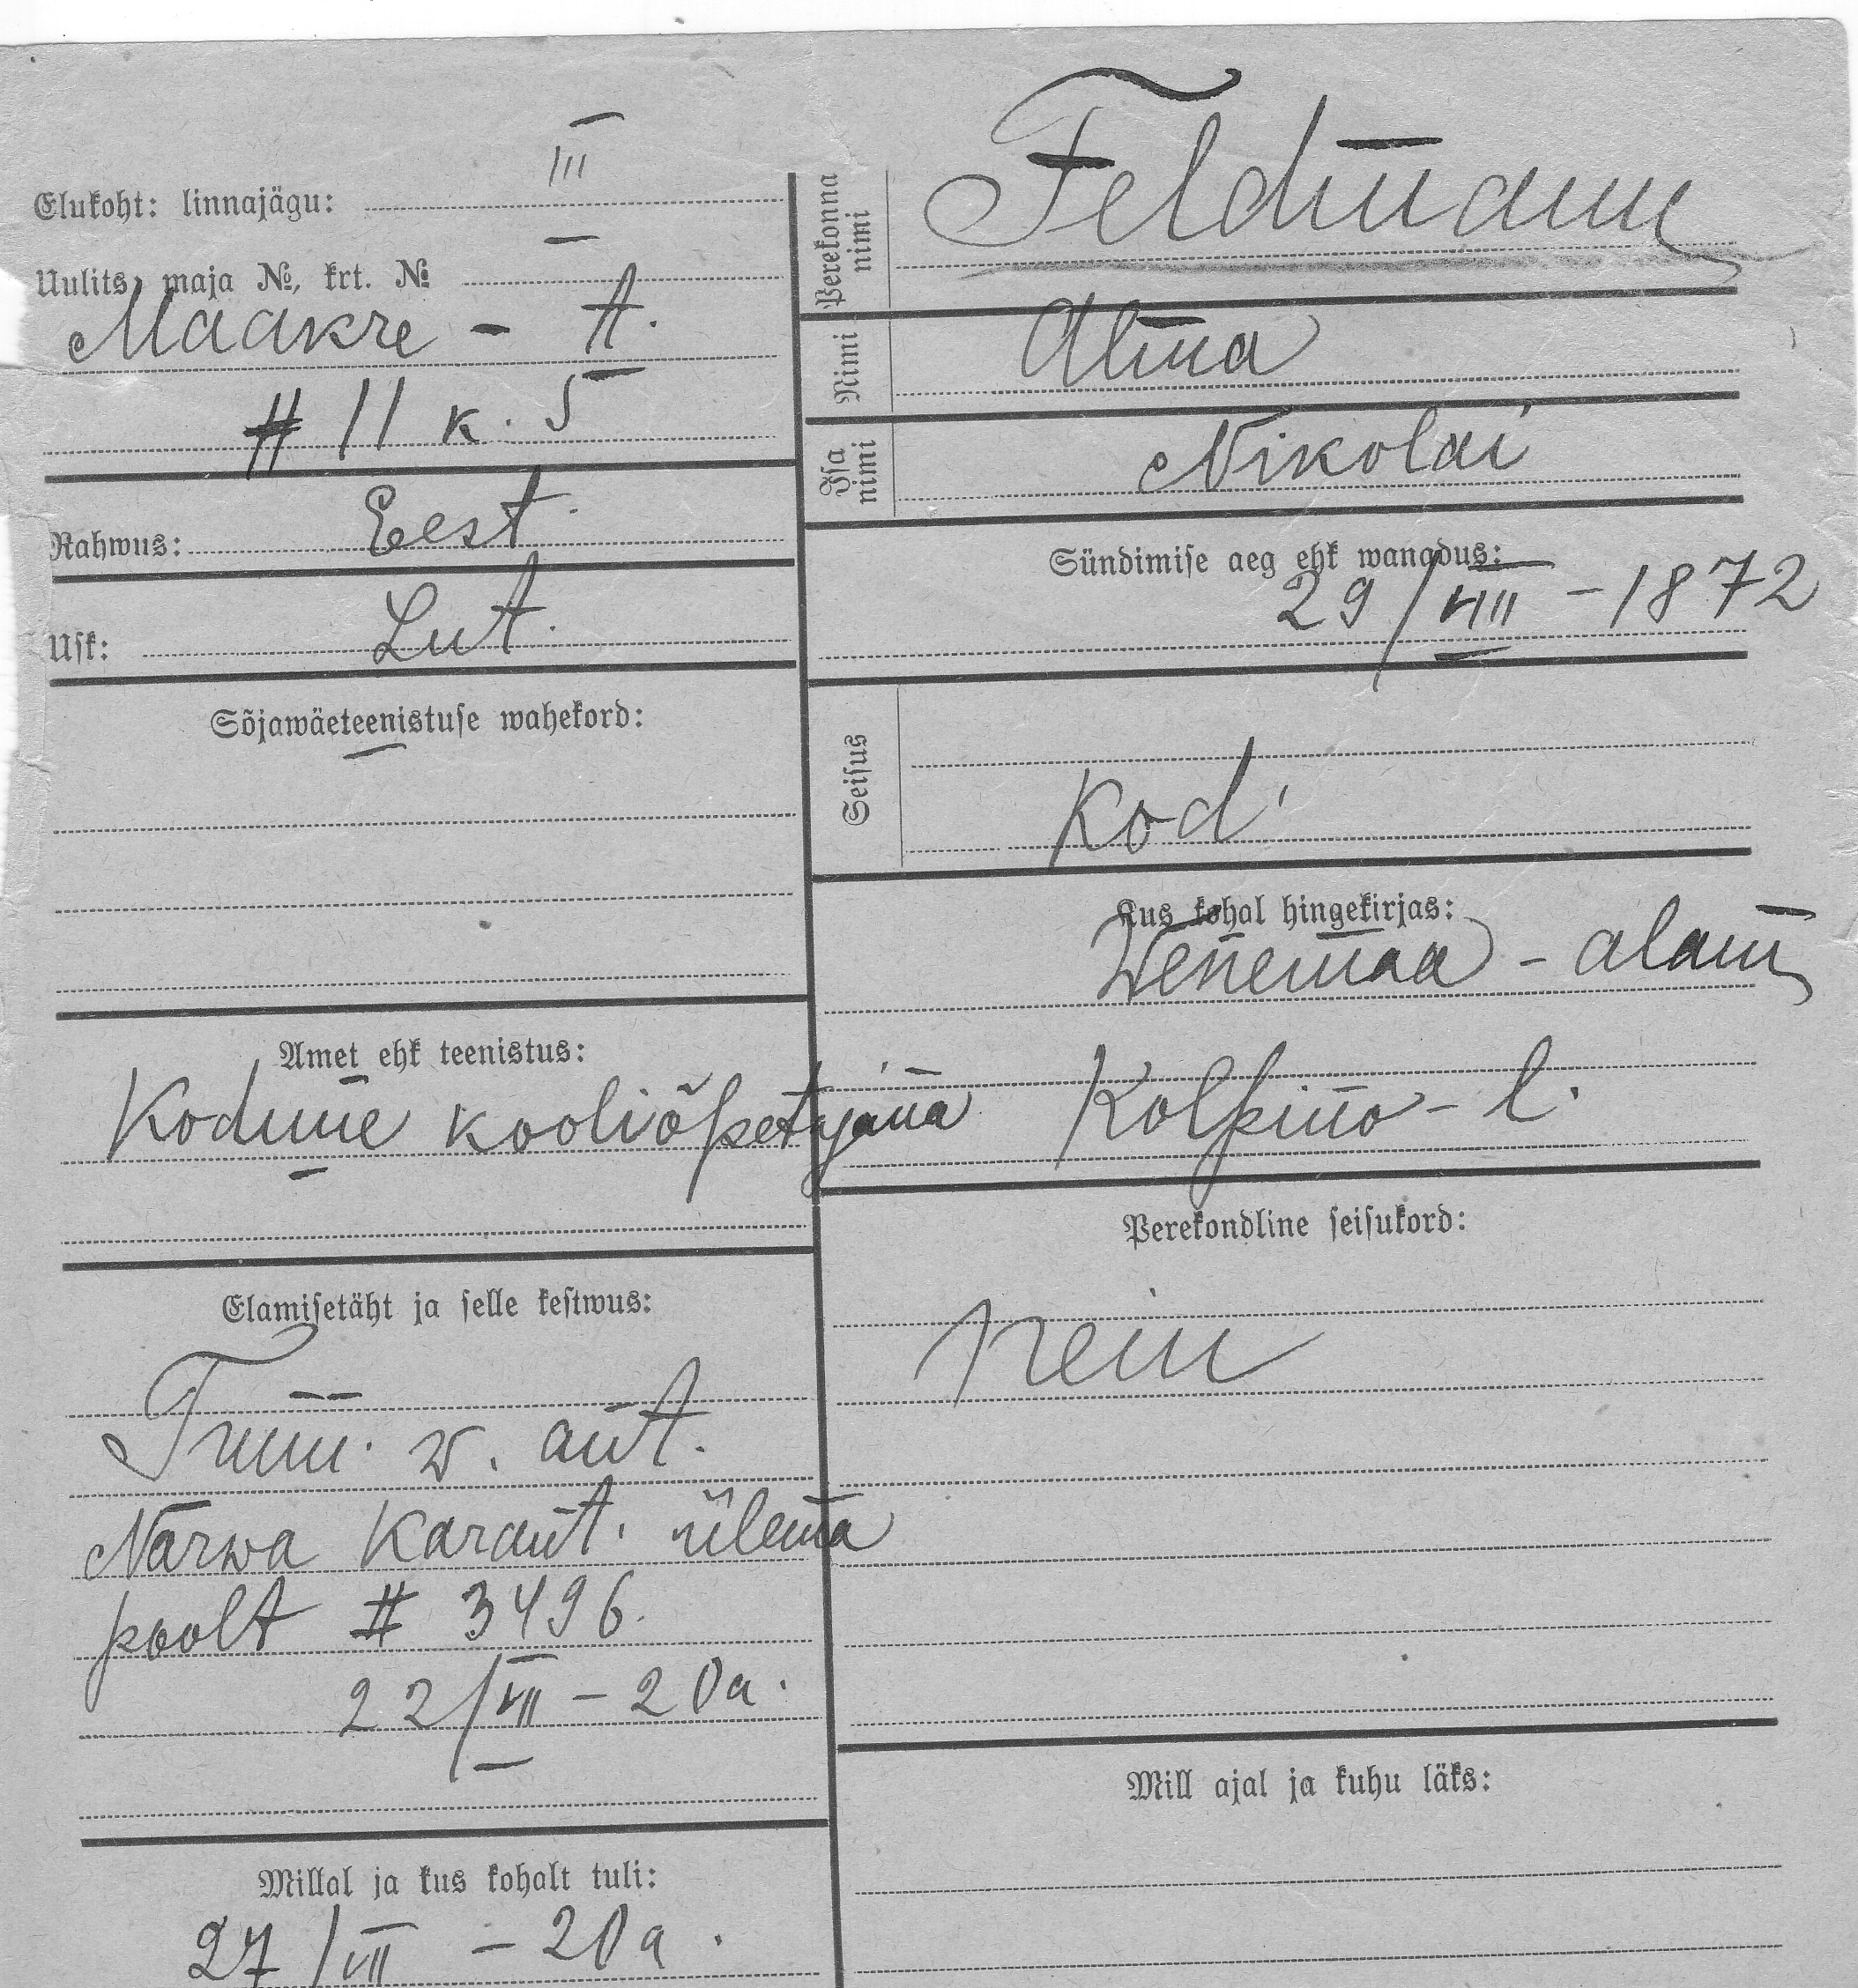 Elukoht: linnajägu: III
Uulits, maja №, krt. №
Maakre - t.
# 11 k. 5
Rahwus: Eest.
Usk: Lut.
Sõjawäeteenistuse wahekord:
—
Amet ehk teenistus:
Kodune kooliõpetajana
Elamisetäht ja selle kestwus:
Tunn. w. ant.
Narwa Karant. ülema
poolt # 3496.
22/VII - 20a.
Millal ja kus kohalt tuli:
27/VII - 20a.
Perekonna nimi
Feldmann
Nimi
Alma
Isa nimi
Nikolai
Sündimise aeg ehk wanadus:
29/VIII - 1872
Seisus
Kod.
Kus kohal hingekirjas:
Wenemaa - alam
Kolpino - l.
Perekondline seisukord:
nein
Mill ajal ja kuhu läks: